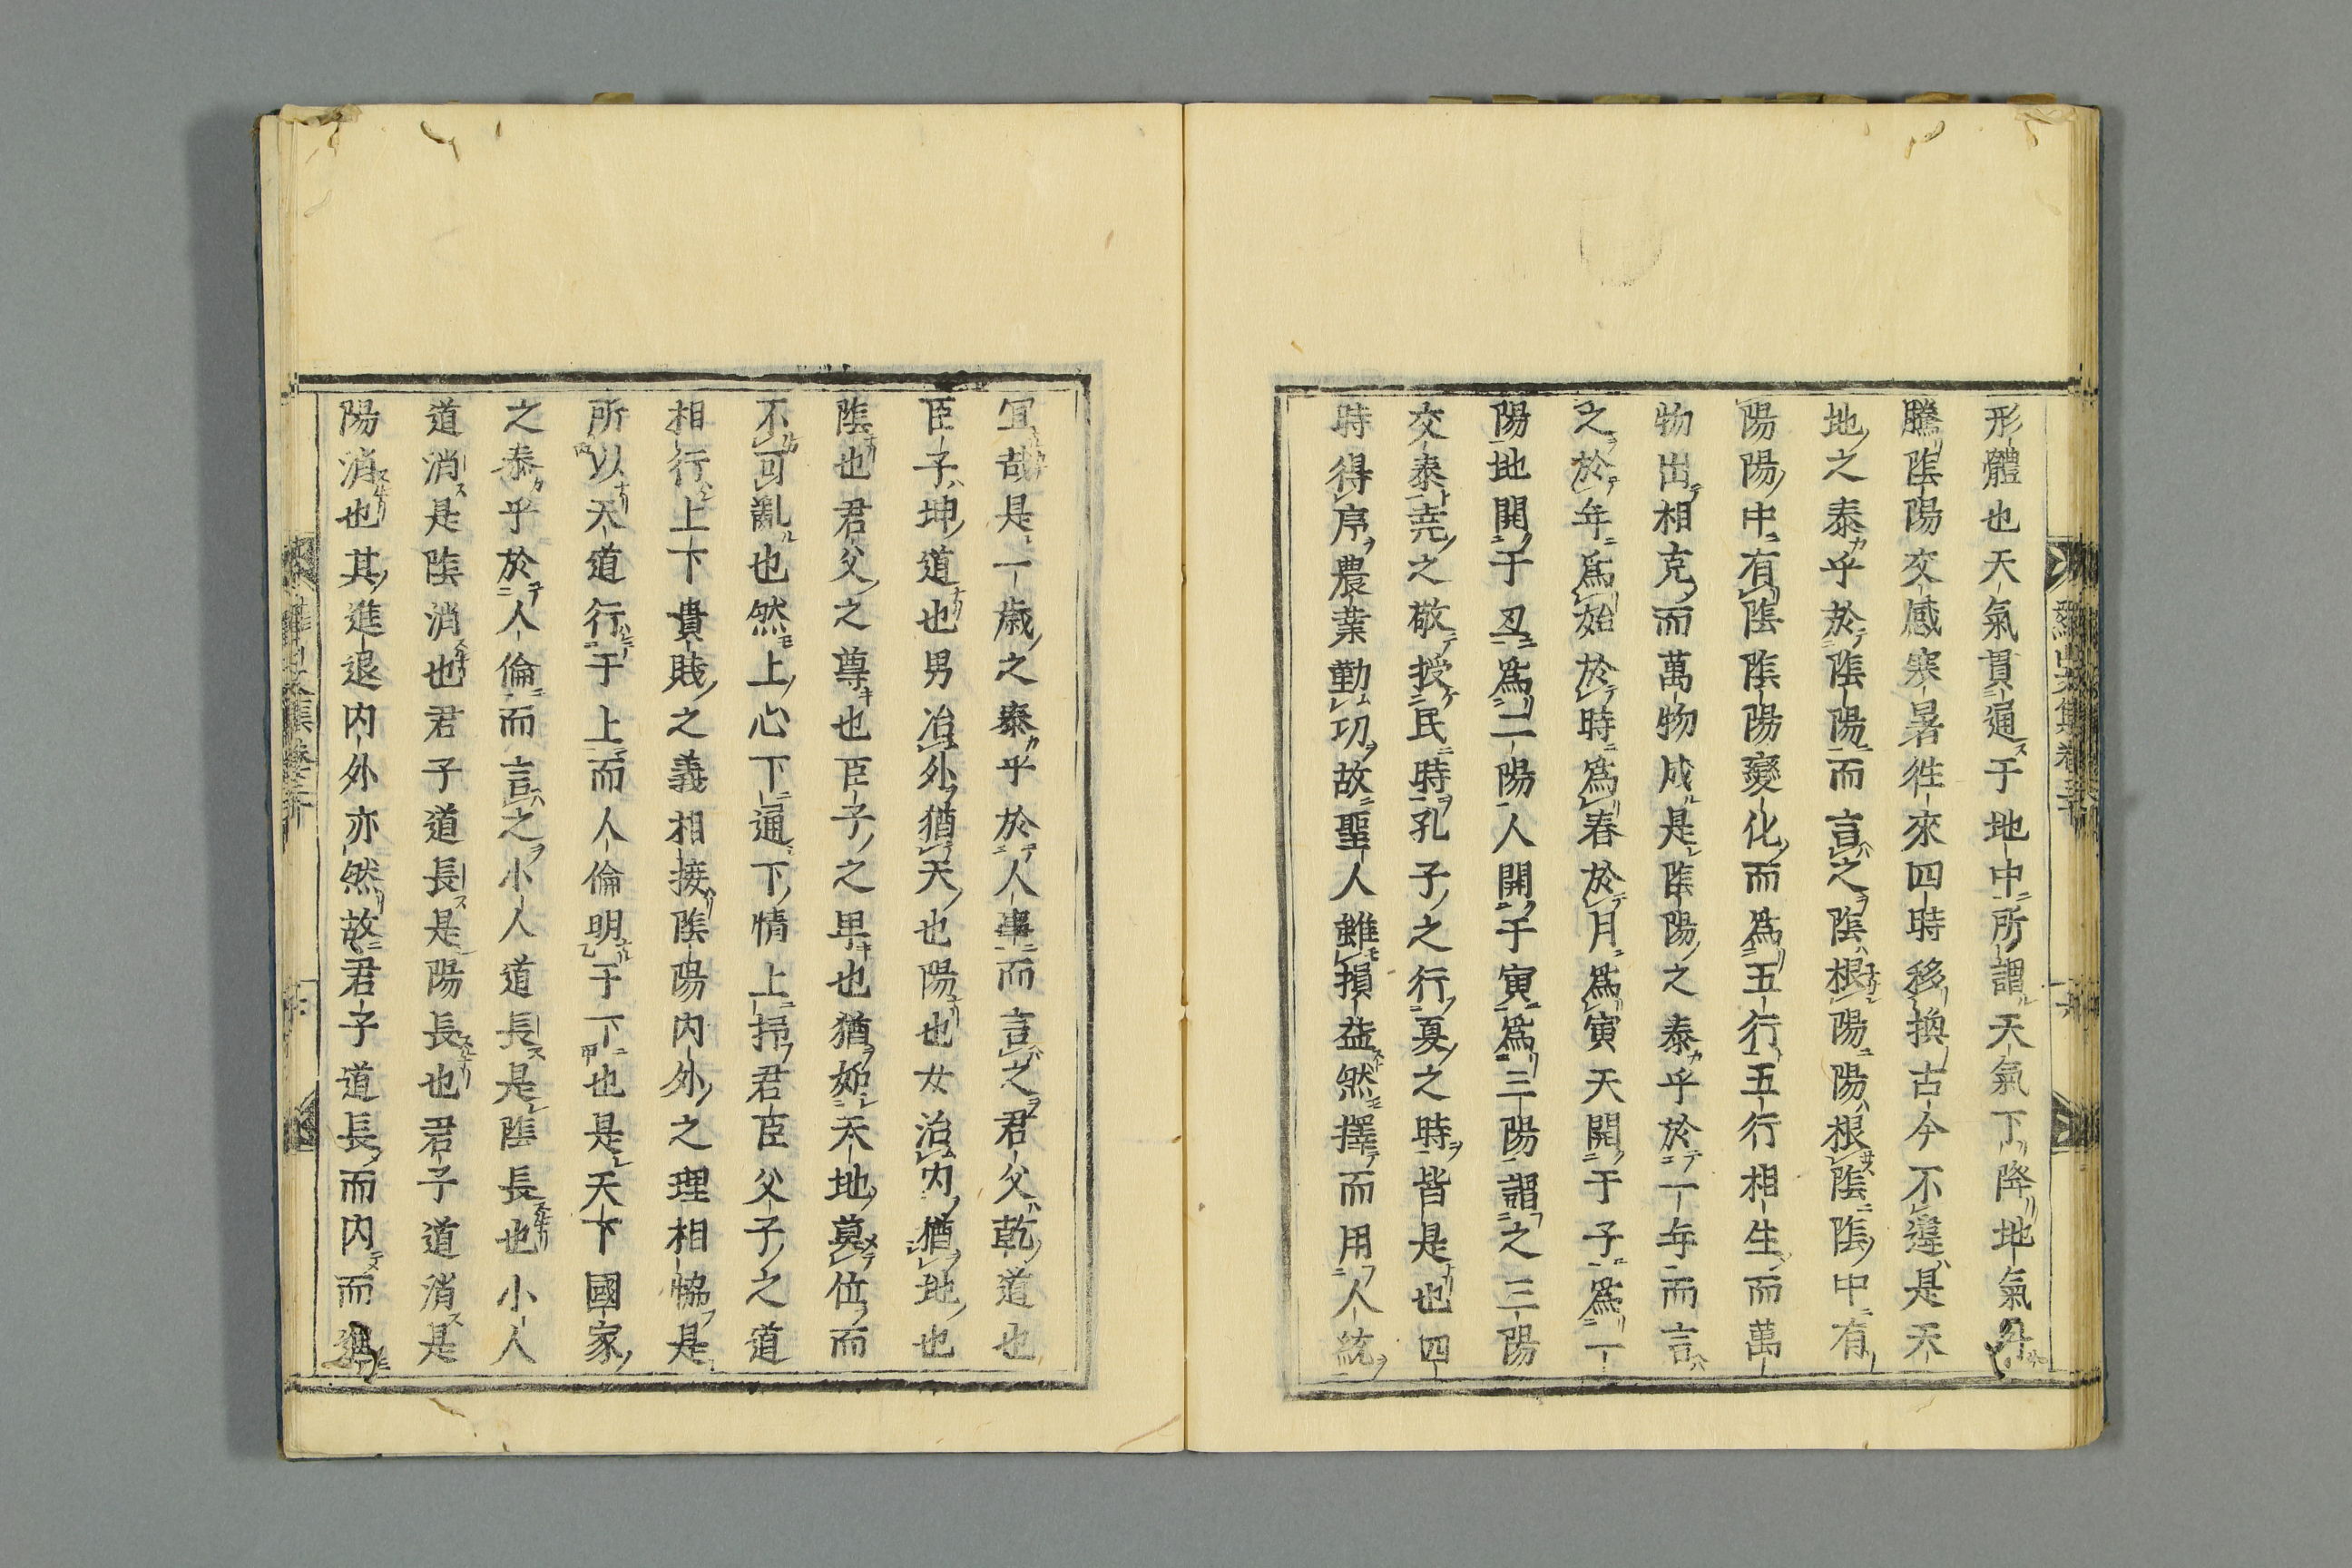 形體也天氣貫通于地中所謂天氣下降地氣升
騰陰陽交感寒暑徃來四時移換古今不違是天
地之泰乎於陰陽而言之陰根陽陽根陰陰中有
陽陽中有陰陰陽變化而爲五行五行相生而萬
物出相克而萬物成是陰陽之泰乎於一年而言
之於年爲始於時爲春於月爲寅天開于子爲一
陽地開于丑爲二陽人開于寅爲三陽謂之三陽
交泰堯之敬授民時孔子之行夏之時皆是也四
時得序農業勤功故聖人雖損益然擇而用人統
宜哉是一歳之泰乎於人事而言之君父乾道也
臣子坤道也男治外猶天也陽也女治内猶地也
陰也君父之尊也臣子之卑也猶如天地奠位而
不可亂也然上心下通下情上孚君臣父子之道
相行上下貴賤之義相接陰陽内外之理相恊是
所以天道行于上而人倫明于下也是天下國家
之泰乎於人倫而言之小人道長是陰長也小人
道消是陰消也君子道長是陽長也君子道消是
陽消也其進退内外亦然故君子道長而内而進